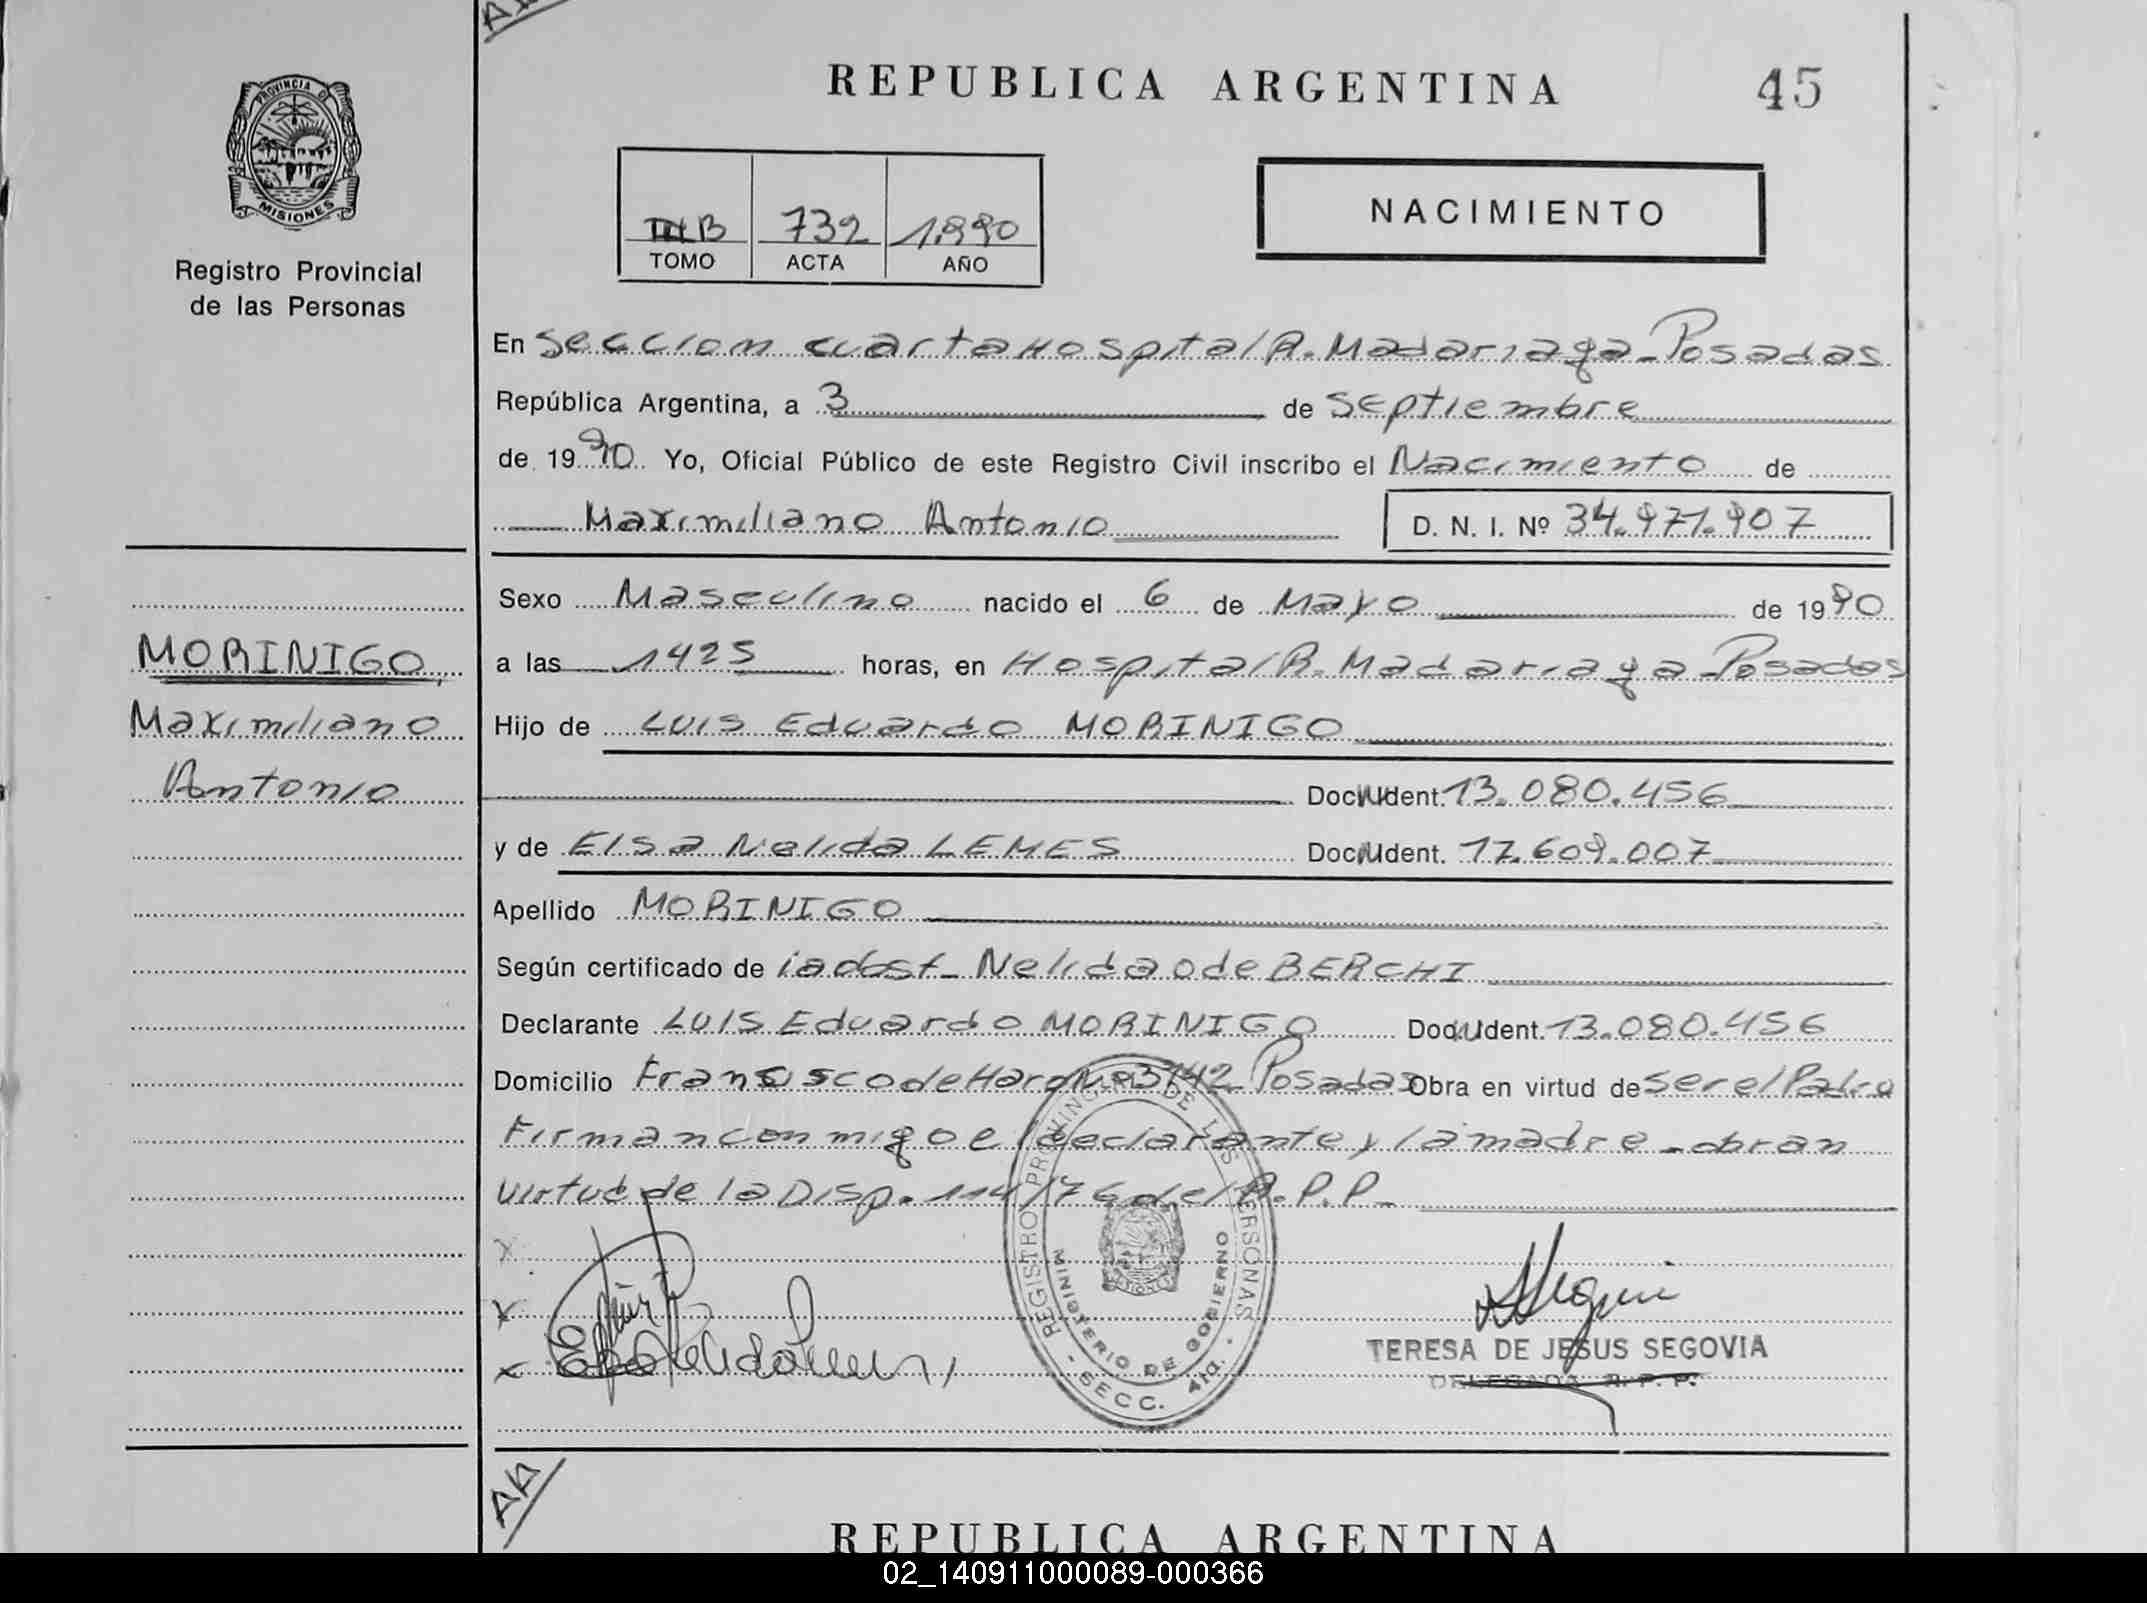 REPUBLICA ARGENTINA
45
PROVINCIA DE
MISIONES
Registro Provincial
de las Personas
B 732 1.990
TOMO ACTA AÑO
NACIMIENTO
En seccion cuarta Hospital R. Madariaga - Posadas
República Argentina, a 3 de septiembre
de 1990 Yo, Oficial Público de este Registro Civil inscribo el Nacimiento de
Maximiliano Antonio D. N. I. Nº 34.971.907
Sexo Masculino nacido el 6 de Mayo de 1990
a las 1425 horas, en Hospital R. Madariaga - Posadas
Hijo de Luis Eduardo MORINIGO
Doc. Ident. 13.080.456
y de Elsa Nelida LEMES Doc. Ident. 17.609.007
Apellido MORINIGO
Según certificado de la obst - Nelida O de BERCHI
Declarante Luis Eduardo MORINIGO Doc. Ident. 13.080.456
Domicilio Fransisco de Haro Nº 3742 Posadas Obra en virtud de ser el Padre
Firman conmigo el declarante y la madre - obran
virtud de la Disp. 114/76 del R.P.P.
MORINIGO
Maximiliano
Antonio
REGISTRO PROVINCIAL DE LAS PERSONAS
MINISTERIO DE GOBIERNO
- SECC. 4ta. -
TERESA DE JESUS SEGOVIA
DELEGADA R. P. P.
AA
REPUBLICA ARGENTINA
02_140911000089-000366